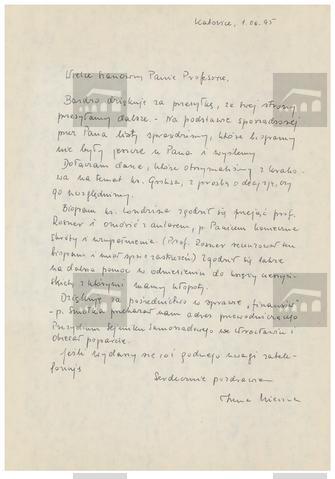 Katowice, 1.06.95
Wielce Szanowny Panie Profesorze,
Bardzo dziękuję za przesyłkę, ze swej strony
przesyłamy dalsze. Na podstawie sporządzonej
przez Pana listy sprawdziliśmy, które biogramy
nie były jeszcze u Pana i wyślemy
Dołączam dane, które otrzymaliśmy z Krako-
wa na temat ks. z prośbą o decyzję, czy
go uwzględnimy.
Biogram ks. Londzina zgodził się przejąć prof.
Rosner i omówić z autorem, p. Panicem konieczne
skróty i uzupełnienia. (Prof. Rosner recenzował ten
biogram i miał sporo zastrzeżeń) Zgodził się także
na dalszą pomoc w odniesieniu do księży cieszyń-
skich z którymi mamy kłopoty.
Dziękuję za pośrednictwo w sprawie "finansów"
- p. Smolka przekazał nam adres przewodniczącego
Prezydium Sejmiku Samorządowego we Wrocławiu i
obiecał poparcie.
Jeśli wydarzy się coś godnego uwagi zatele-
fonuję
Serdecznie pozdrawiam